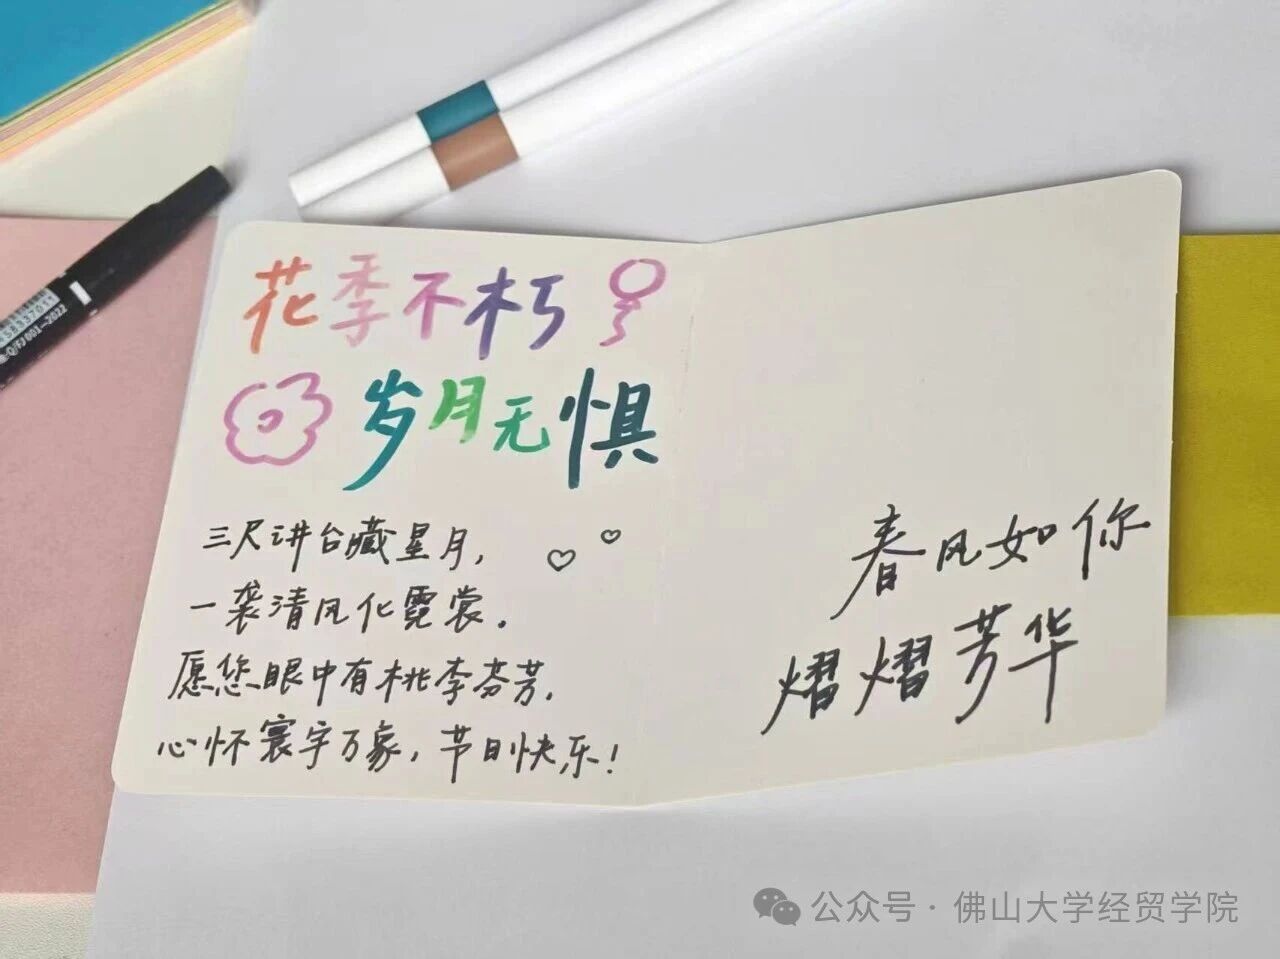 花季不朽
岁月无惧
三尺讲台藏星月,
一袭清风化霓裳.
愿您眼中有桃李芬芳.
心怀寰宇万象,节日快乐!
春风如你
熠熠芳华
001-2022
公众号·佛山大学经贸学院